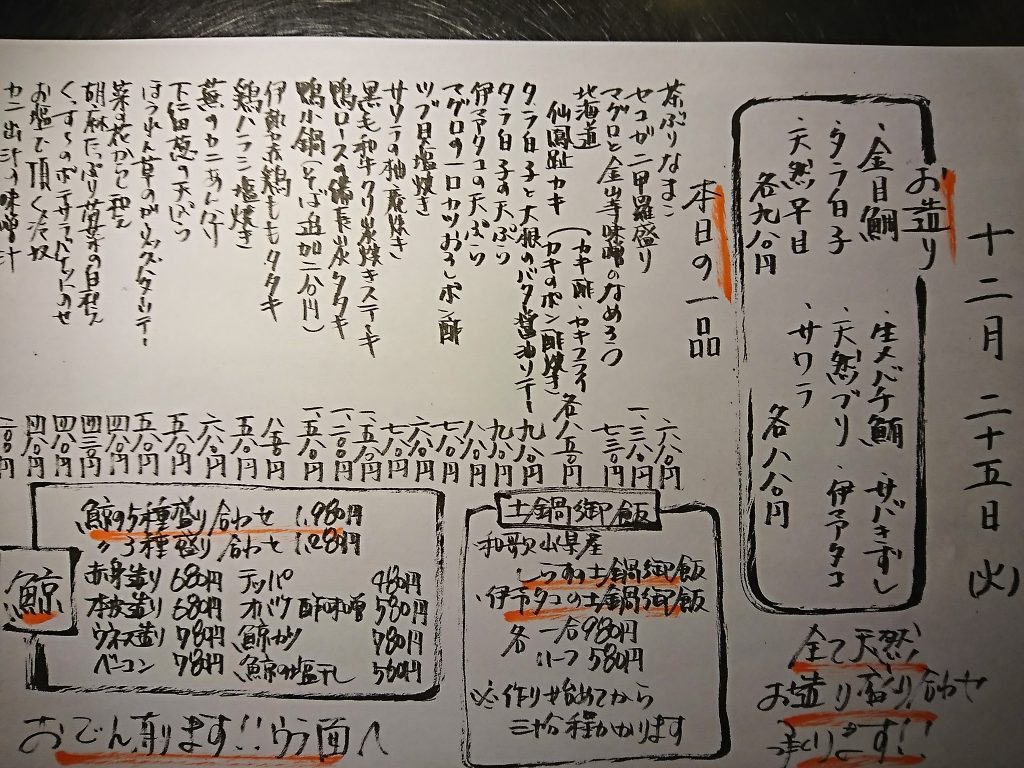 十二月 二十五日 (火)
お造り
・金目鯛 ・生メバチ鮪 ・サバきずし
・タラ白子 ・天然ブリ ・伊予タコ
・天然早目 ・サワラ
各九八〇円 各八八〇円
全て天然
お造り盛り合わせ
承ります!!
本日の一品
茶ぶりなまこ 六八〇円
セコガニ甲羅盛り 一、三八〇円
マグロと金山寺味噌のなめろう 七三〇円
北海道
仙鳳趾カキ (カキ酢 カキフライ カキのポン酢焼き 各八五〇円
タラ白子と大根のバター醤油ソテー 九八〇円
タラ白子の天ぷら 九八〇円
伊予タコの天ぷら 八八〇円
マグロの一口カツおろしポン酢 七八〇円
ツブ貝塩焼き 六八〇円
サワラの柚庵焼き 七八〇円
黒毛和牛クリ炭焼きステーキ 一、五八〇円
鴨ロースの備長炭タタキ 一、二八〇円
鴨小鍋(そば追加二八〇円) 一、五八〇円
伊勢赤鶏ももタタキ 八五〇円
鶏ハラミ塩焼き 五八〇円
蕪のカニあんかけ 六八〇円
下仁田葱の天ぷら 五八〇円
ほうれん草のガーリックバターソテー 五八〇円
菜の花からし和え 四八〇円
胡麻たっぷり春菊の白和え 四三〇円
くずし豆腐 四八〇円
お塩で頂く冷奴 四八〇円
カニ出汁の味噌汁
土鍋御飯
和歌山県産
しらすの土鍋御飯
伊予タコの土鍋御飯
各 一合980円
ハーフ580円
※作り始めてから
三十分程かかります
鯨
鯨の5種盛り合わせ 1,980円
〃3種盛り合わせ 1,280円
赤身造り 680円 テッパ 980円
本皮造り 680円 オバケ酢味噌 580円
ウネス造り 780円 鯨カツ 780円
ベーコン 780円 鯨の塩干し 560円
おでん有ります!!ウラ面へ